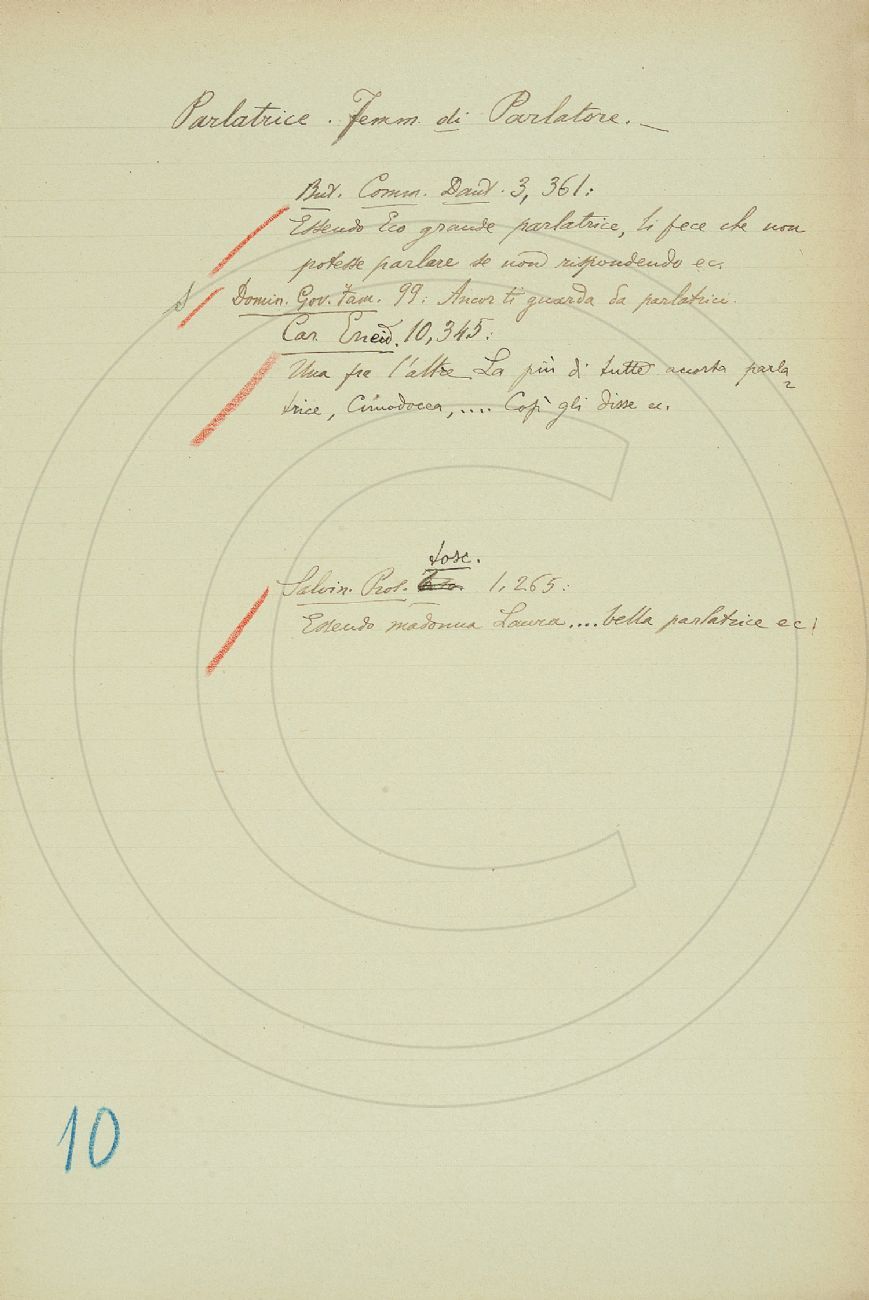 Parlatrice. Femm. di Parlatore. —
But. Comm. Dant. 3, 361:
Essendo Eco grande parlatrice, li fece che non
potesse parlare se non rispondendo ec.
Domin. Gov. fam. 99: Ancor ti guarda da parlatrici.
Car. Eneid. 10, 345:
Una fra l'altre La più di tutte accorta parla
trice, Cimodocea, .... Così gli disse ec.
tosc.
Salvin. Pros. 1, 265:
Essendo madonna Laura .... bella parlatrice ec.
10